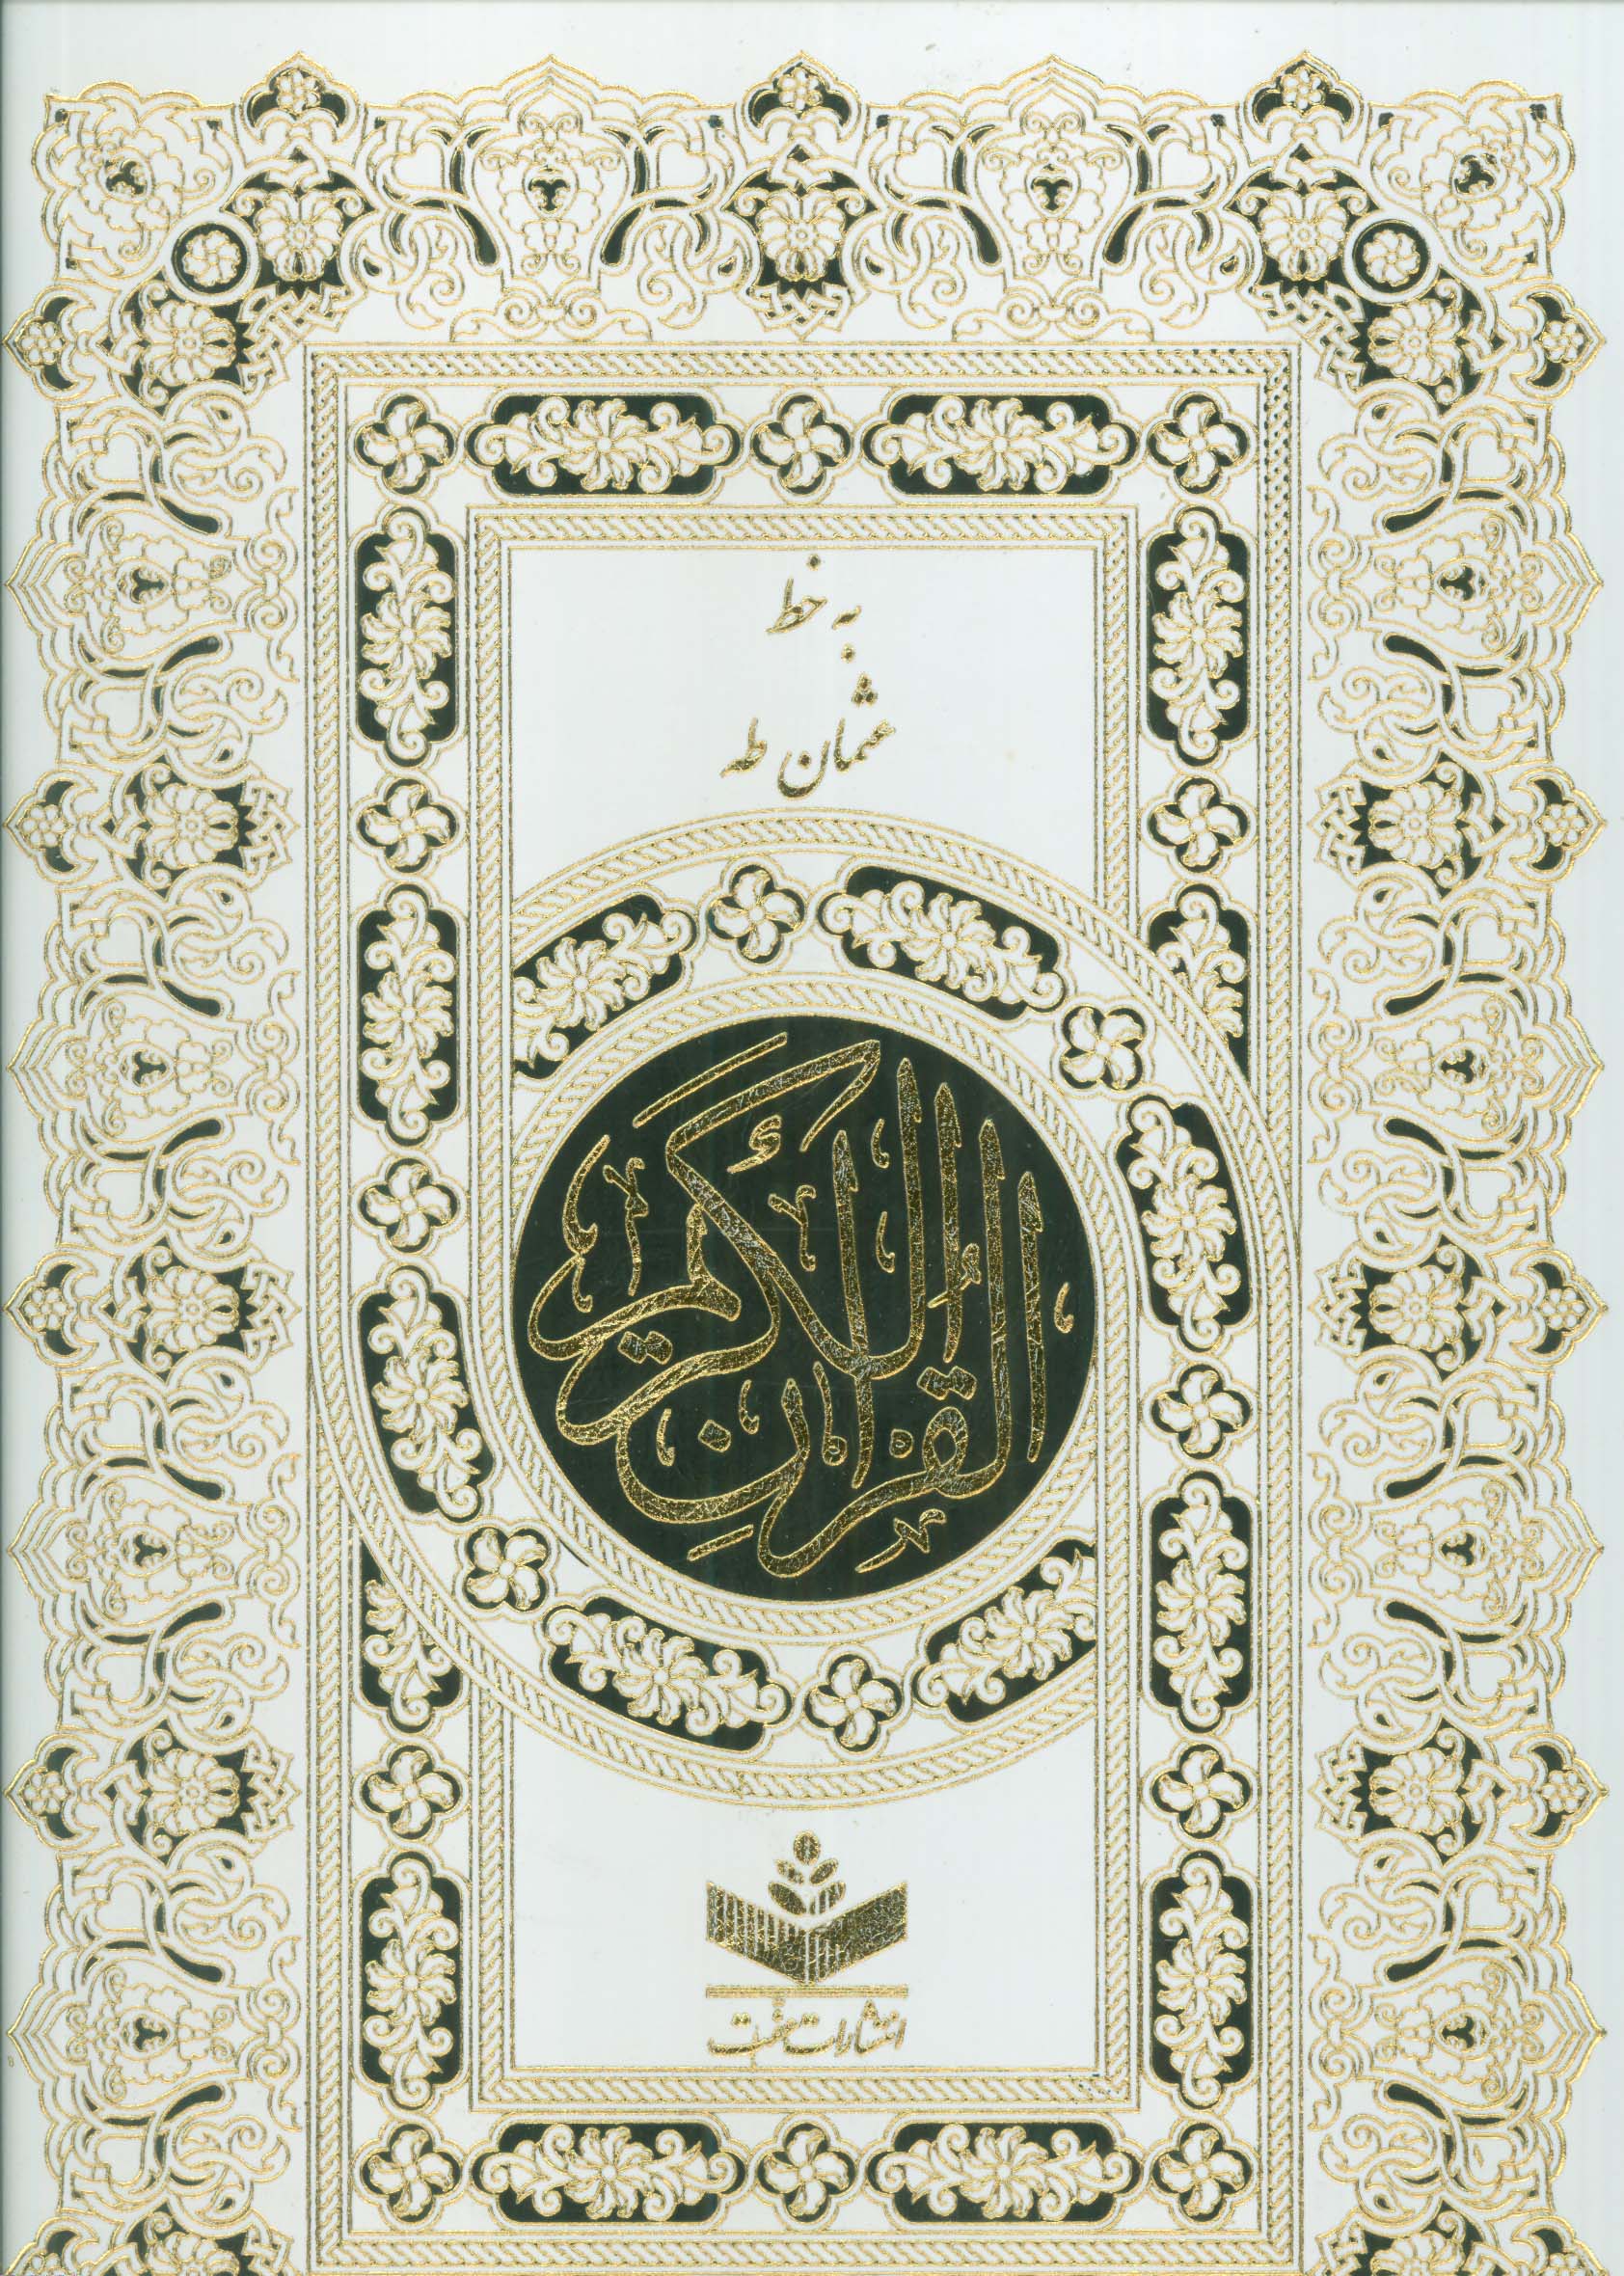 به خط
عثمان طه
القرآن الكريم
انتشارات محبت